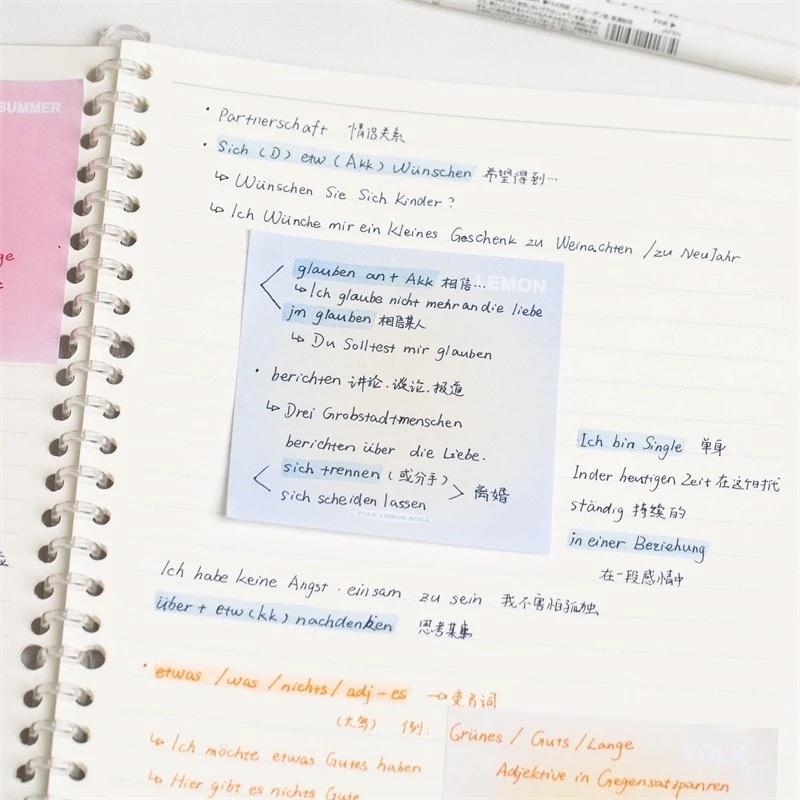 SUMMER
ge
• Partnerschaft 情侣关系
• Sich (D) etw (Akk) Wünschen 希望得到…
↳ Wünschen Sie Sich Kinder?
↳ Ich Wünche mir ein kleines Geschenk zu Weinachten /zu NeuJahr
LEMON
glauben an + Akk 相信…
↳ Ich glaube nicht mehr an die liebe
jm glauben 相信某人
↳ Du Solltest mir glauben
• berichten 讲论.谈论.报道
↳ Drei Grobstadtmenschen
berichten über die Liebe.
sich trennen (或分手)
sich scheiden lassen 离婚
YOLK LEMON SODA
Ich bin Single 单身
Inder heutigen Zeit 在这个时代
ständig 持续的
in einer Beziehung
在一段感情中
Ich habe keine Angst . einsam zu sein 我不害怕孤独
über + etw (kk) nachdenken 思考某事
• etwas /was /nichts/ adj-es → 变名词
(大写) 例:
Grünes / Guts /Lange
Adjektive in Gegensatzpanren
↳ Ich möchte etwas Gutes haben
↳ Hier gibt es nichts Gute
YOLK